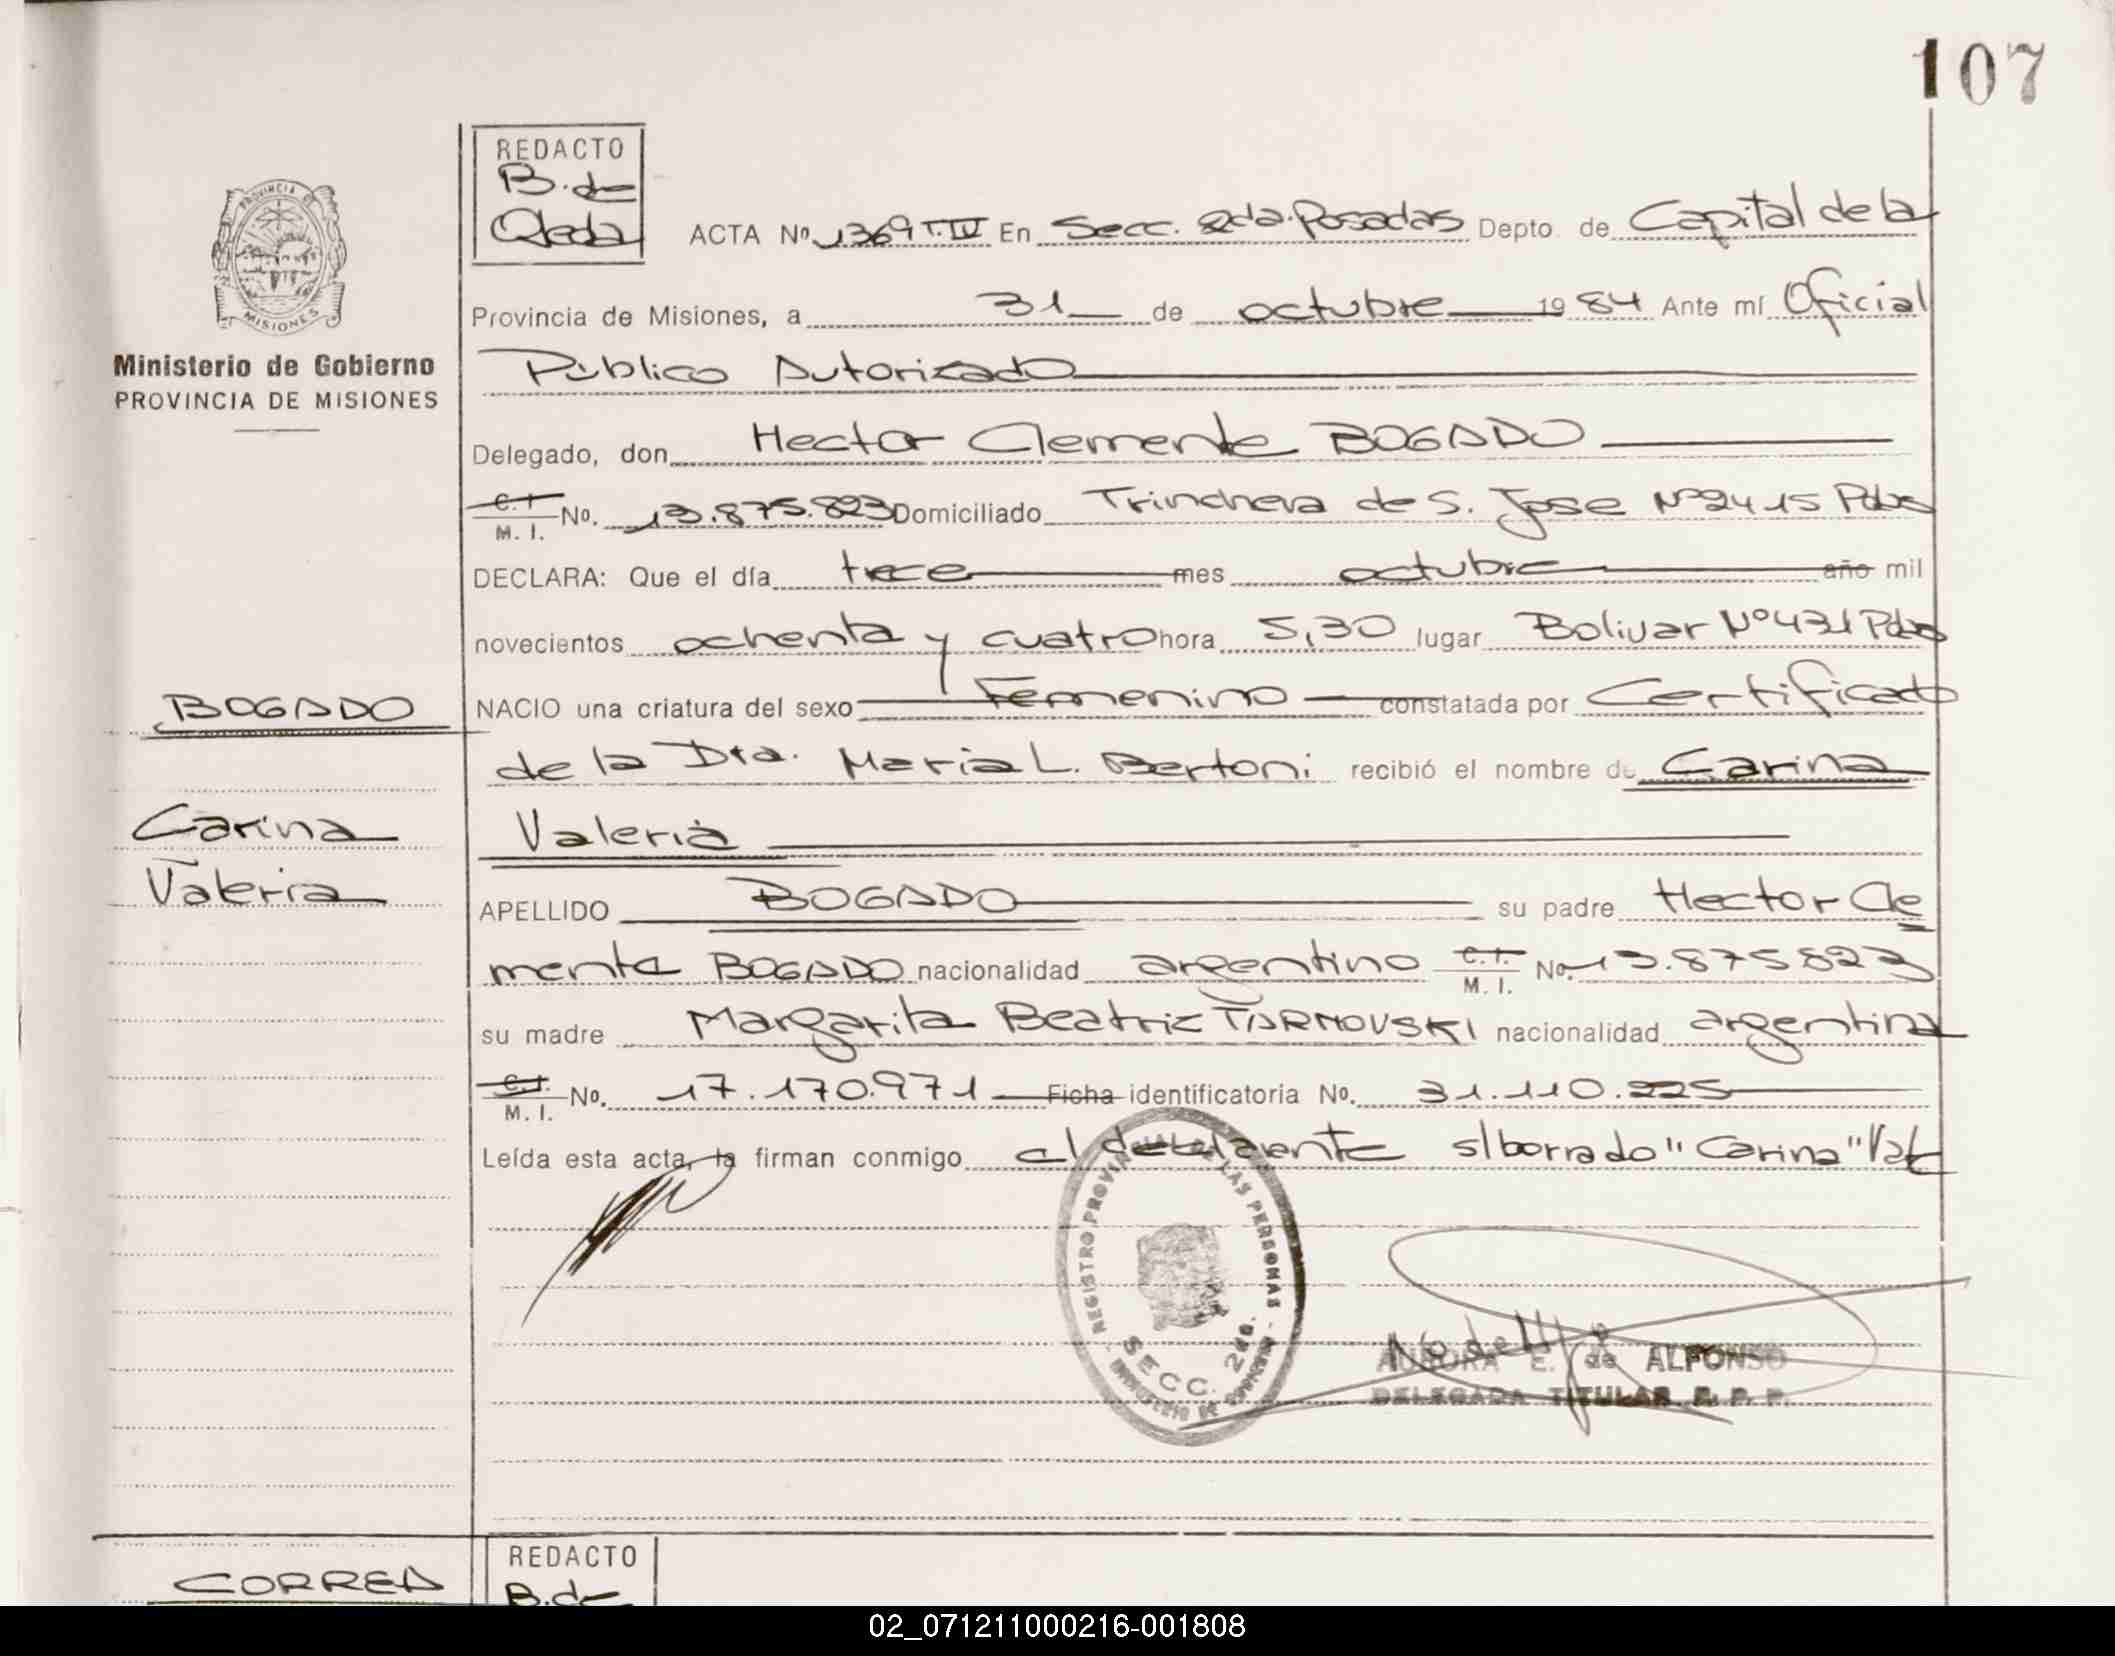 107
REDACTO
B. de
Ojeda
ACTA Nº 1369 T.IV En Secc. 2da. Posadas Depto. de Capital de la
PROVINCIA DE
MISIONES
Provincia de Misiones, a 31 de octubre 1984 Ante mí Oficial
Ministerio de Gobierno
PROVINCIA DE MISIONES
Público Autorizado
Delegado, don Hector Clemente BOGADO
C.I.
M. I. No. 13.875.823 Domiciliado Trinchera de S. Jose Nº 2415 Pdas
DECLARA: Que el día trece mes octubre año mil
novecientos ochenta y cuatro hora 5,30 lugar Bolivar Nº 431 Pdas
BOGADO
NACIO una criatura del sexo Femenino constatada por Certificado
de la Dra. Maria L. Bertoni recibió el nombre de Carina
Carina
Valeria
Valeria
APELLIDO BOGADO su padre Hector Cle
mente BOGADO nacionalidad argentino C.I. M. I. No. 13.875.823
su madre Margarita Beatriz TARNOVSKI nacionalidad argentina
C.I.
M. I. No. 17.170.971 Ficha identificatoria No. 31.110.225
Leída esta acta, la firman conmigo el declarante s/borrado "Carina" Vale
REGISTRO PROVIN LAS PERSONAS
SECC. 2da.
MINISTERIO DE GOBIERNO
AURORA E. de ALFONSO
DELEGADA TITULAR R. P. P.
CORREA
REDACTO
B. de
02_071211000216-001808